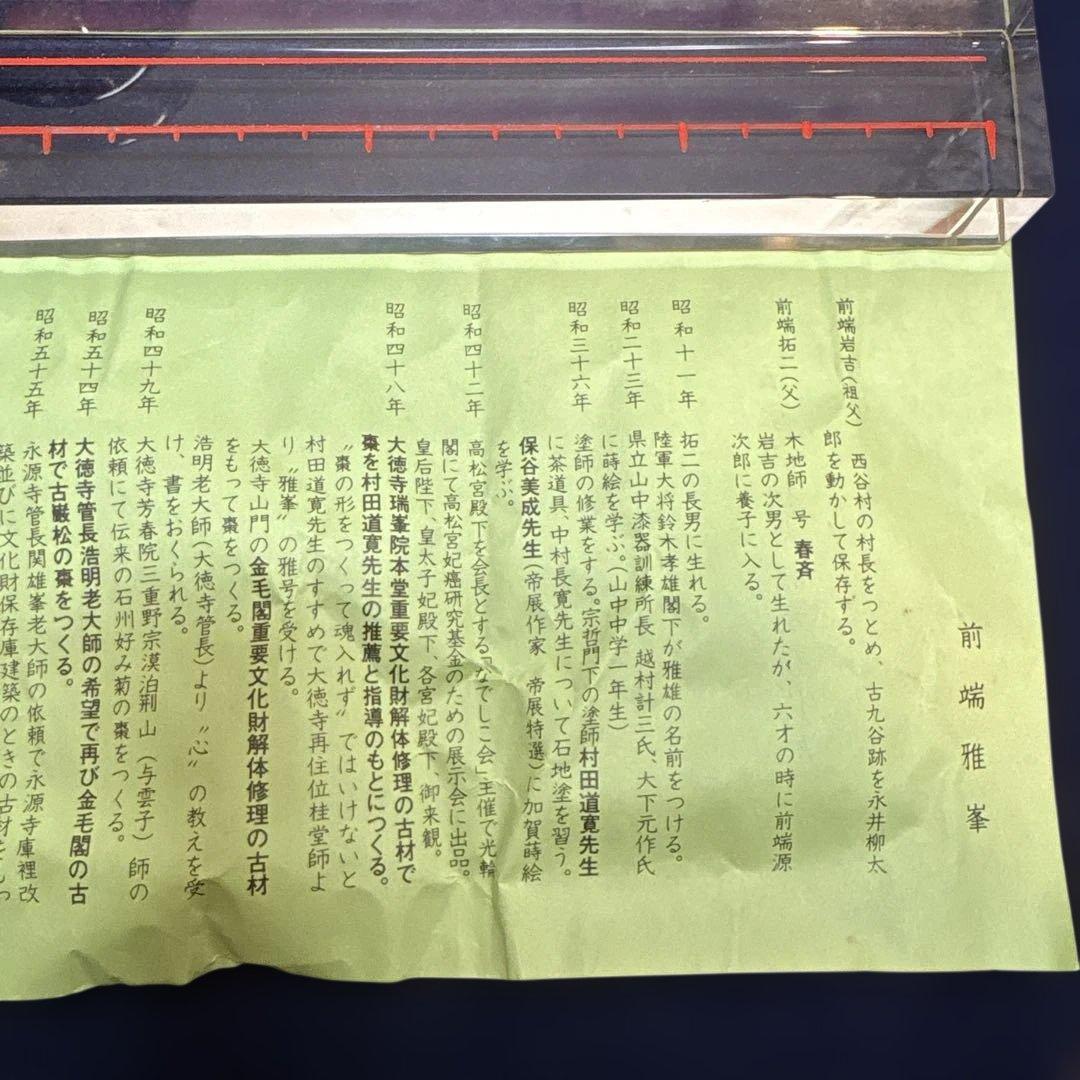 前端雅峯
前端岩吉(祖父)
西谷村の村長をつとめ、古九谷跡を永井柳太
郎を動かして保存する。
前端拓二(父)
木地師 号 春斉
岩吉の次男として生れたが、六才の時に前端源
次郎に養子に入る。
昭和十一年
拓二の長男に生れる。
陸軍大将鈴木孝雄閣下が雅雄の名前をつける。
昭和二十三年
県立山中漆器訓練所長 越村計三氏、大下元作氏
に蒔絵を学ぶ。(山中中学一年生)
昭和三十六年
塗師の修業をする。宗哲門下の塗師村田道寛先生
に茶道具、中村長寛先生について石地塗を習う。
保谷美成先生(帝展作家 帝展特選)に加賀蒔絵
を学ぶ。
昭和四十二年
高松宮殿下を会長とする「なでしこ会」主催で光輪
閣にて高松宮妃癌研究基金のための展示会に出品。
皇后陛下、皇太子妃殿下、各宮妃殿下、御来観。
昭和四十八年
大徳寺瑞峯院本堂重要文化財解体修理の古材で
棗を村田道寛先生の推薦と指導のもとにつくる。
〝棗の形をつくって魂入れず〟ではいけないと
村田道寛先生のすすめで大徳寺再住位桂堂師よ
り〝雅峯〟の雅号を受ける。
大徳寺山門の金毛閣重要文化財解体修理の古材
をもって棗をつくる。
浩明老大師(大徳寺管長)より〝心〟の教えを受
け、書をおくられる。
昭和四十九年
大徳寺芳春院三重野宗漠泊荊山(与雲子)師の
依頼にて伝来の石州好み菊の棗をつくる。
昭和五十四年
大徳寺管長浩明老大師の希望で再び金毛閣の古
材で古巌松の棗をつくる。
昭和五十五年
永源寺管長関雄峯老大師の依頼で永源寺庫裡改
築並びに文化財保存庫建築のときの古材をもっ